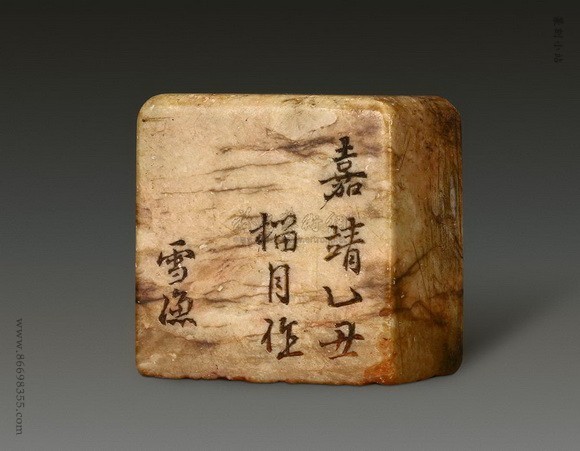 嘉靖乙丑
榴月作
雪漁
www.86698355.com
篆刻小站